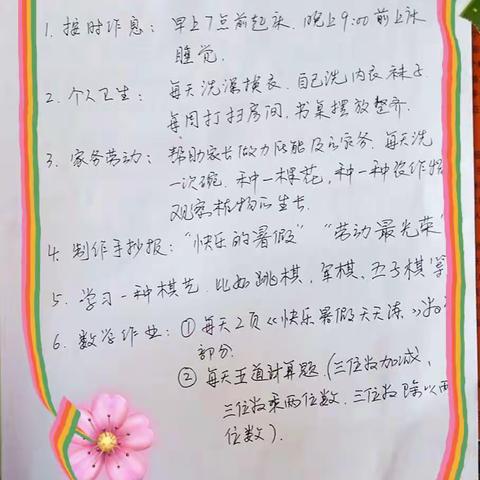 1. 按时作息: 早上7点前起床. 晚上9:00前上床
睡觉.
2. 个人卫生: 每天洗澡换衣. 自己洗内衣袜子.
每周打扫房间, 书桌摆放整齐.
3. 家务劳动: 帮助家长做力所能及的家务. 每天洗
一次碗. 种一棵花, 种一种农作物
观察植物的生长.
4. 制作手抄报: "快乐的暑假" "劳动最光荣"
5. 学习一种棋艺. 比如跳棋, 军棋, 五子棋等
6. 数学作业: ① 每天2页《快乐暑假天天练》数学
部分.
② 每天五道计算题. (三位数加减,
三位数乘两位数. 三位数除以两
位数).